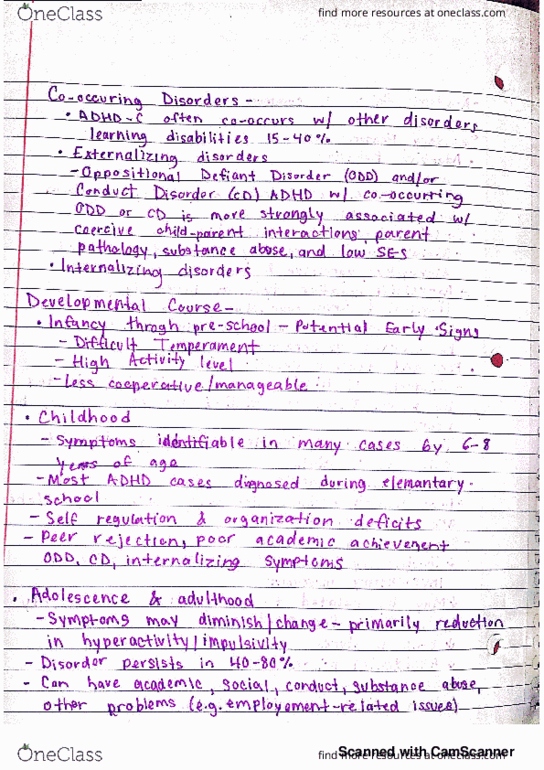 OneClass
find more resources at oneclass.com
Co-occuring Disorders -
• ADHD-C often co-occurs w/ other disorders
learning disabilities 15-40%
• Externalizing disorders
- Oppositional Defiant Disorder (ODD) and/or
Conduct Disorder (CD) ADHD w/ co-occurring
ODD or CD is more strongly associated w/
coercive child-parent interactions, parent
pathology, substance abuse, and low SES
• Internalizing disorders
Developmental Course -
• Infancy throgh pre-school - Potential Early Signs
- Difficult Temperament
- High Activity level
- Less cooperative/manageable
• Childhood
- Symptoms identifiable in many cases by 6-8
years of age
- Most ADHD cases dignosed during elemantary
school
- Self regulation & organization deficits
- Peer rejection, poor academic achievement
ODD, CD, internalizing symptoms
• Adolescence & adulthood
- Symptoms may diminish/change - primarily reduction
in hyperactivity/impulsivity
- Disorder persists in 40-80%
- Can have academic, social, conduct, substance abuse,
other problems (e.g. employement-related issues)
OneClass
find more resources at oneclass.com
Scanned with CamScanner